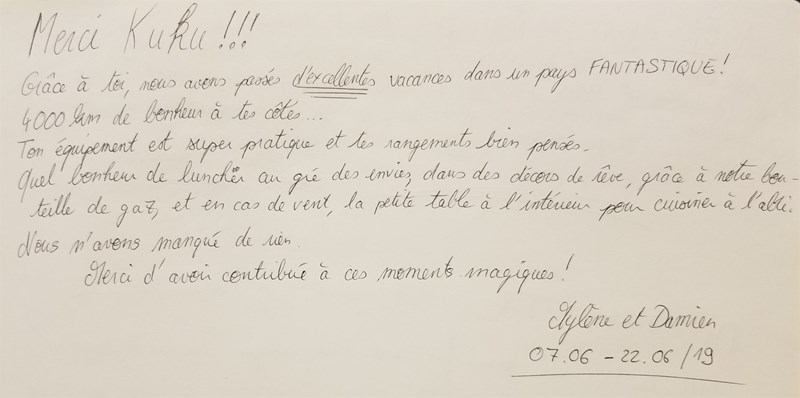 Merci Kuku !!!
Grâce à toi, nous avons passés d'excellentes vacances dans un pays FANTASTIQUE !
4000 km de bonheur à tes côtés...
Ton équipement est super pratique et tes rangements bien pensés.
Quel bonheur de luncher au gré des envies, dans des décors de rêve, grâce à notre bou-
teille de gaz, et en cas de vent, la petite table à l'intérieur pour cuisiner à l'abri.
Nous n'avons manqué de rien.
Merci d'avoir contribué à ces moments magiques !
Mylène et Damien
07.06 - 22.06 /19